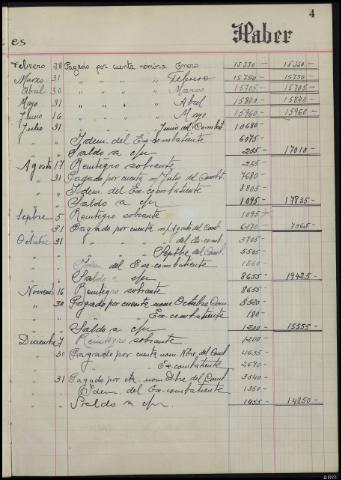 4
es Haber
Febrero 28 Pagado por cuenta nomina Enero 15330 15330
Marzo 31 " " " " Febrero 15750 15750
Abril 30 " " " " Marzo 15705 15705
Mayo 31 " " " " Abril
Junio 16 " " " " Mayo 15960 15960
Julio 31 " " " Junio del Combat. 10680
" " Idem. del Ex-combatiente 6075
" " Saldo a c/n 255 17010
Agosto 17 Reintegro sobrante 255
" 31 Pagado por cuenta n/ Julio del Combt 7680
" " Idem del Ex-combatiente
" " Saldo a c/n 1095
Septbre 5 Reintegro sobrante 1095
" 31 Pagado por cuenta n/ Agosto del Comb
Octubre 31 " " " del Ex-comb.
" " " Septbre del Comb. 5505
" " Idem del Ex-combatiente
" " Saldo a c/n 8655 19425
Noviem 16 Reintegro sobrante 8655
" 30 Pagado por cuenta nom Octubre Com.
" " " " Ex-combatiente 180
" " Saldo a c/n 1200 15555
Diciembre 7 Reintegro sobrante 1200
" 30 Pagado por cuenta nom. Nbre. del Comb
" " " " Ex-combatiente
" 31 Pagado por cta nom. Dbre del Comb.
" " Idem. del Ex-combatiente 1350
" " Saldo a c/n 1455 14850